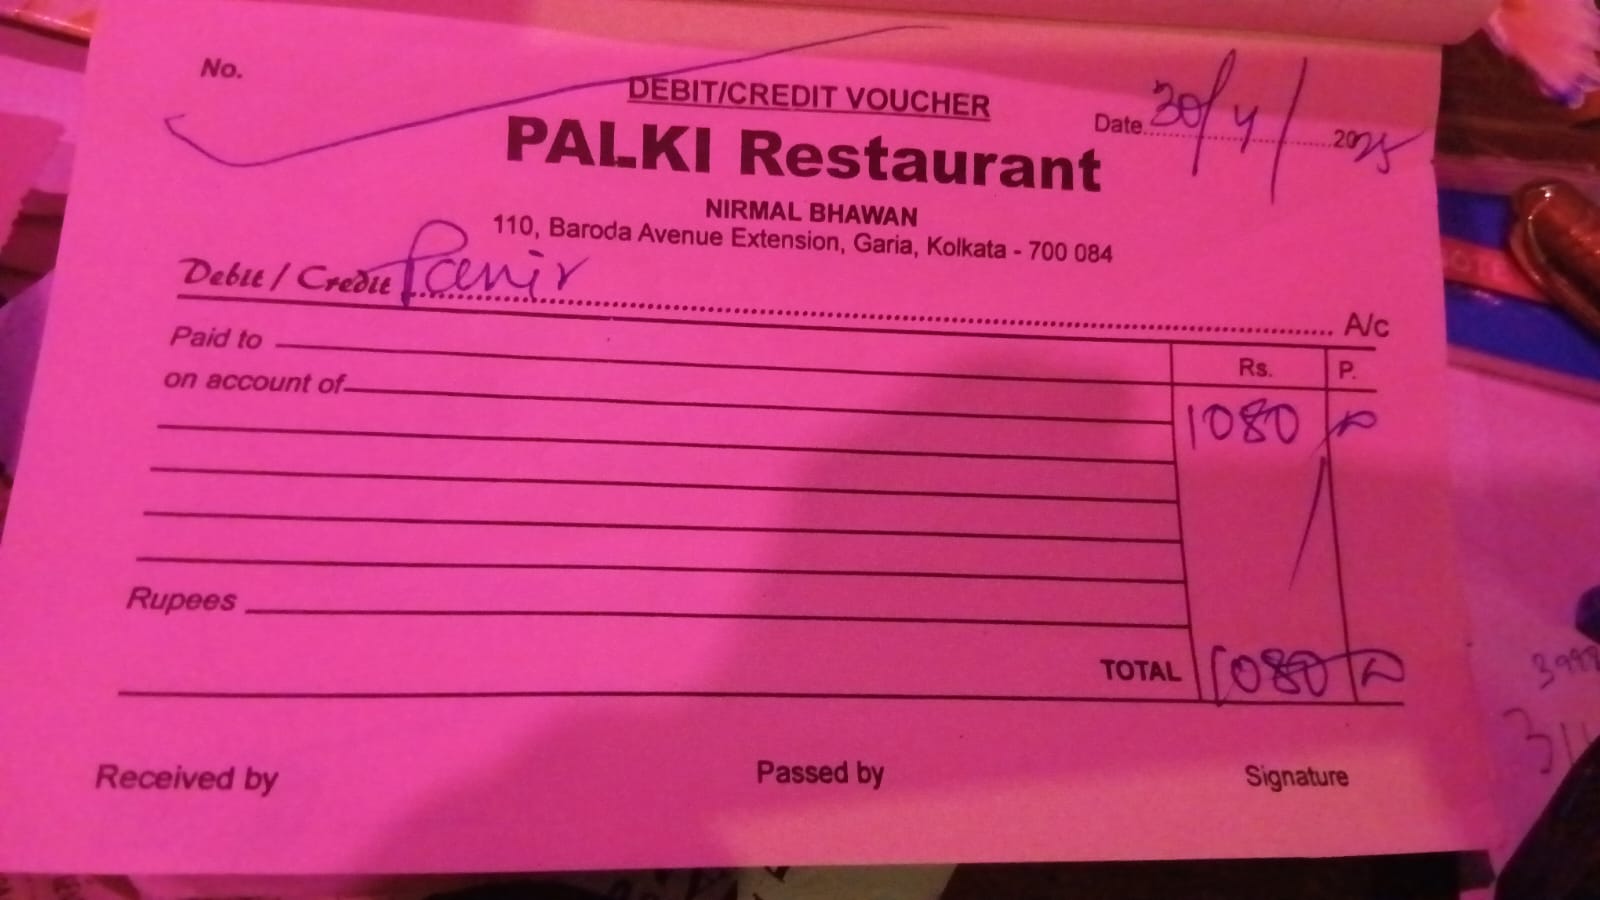 No.
DEBIT/CREDIT VOUCHER
Date 30/4/2025
PALKI Restaurant
NIRMAL BHAWAN
110, Baroda Avenue Extension, Garia, Kolkata - 700 084
Debit / Credit Panir A/c
Paid to
Rs. P.
on account of
1080
Rupees
TOTAL 1080
Received by Passed by Signature